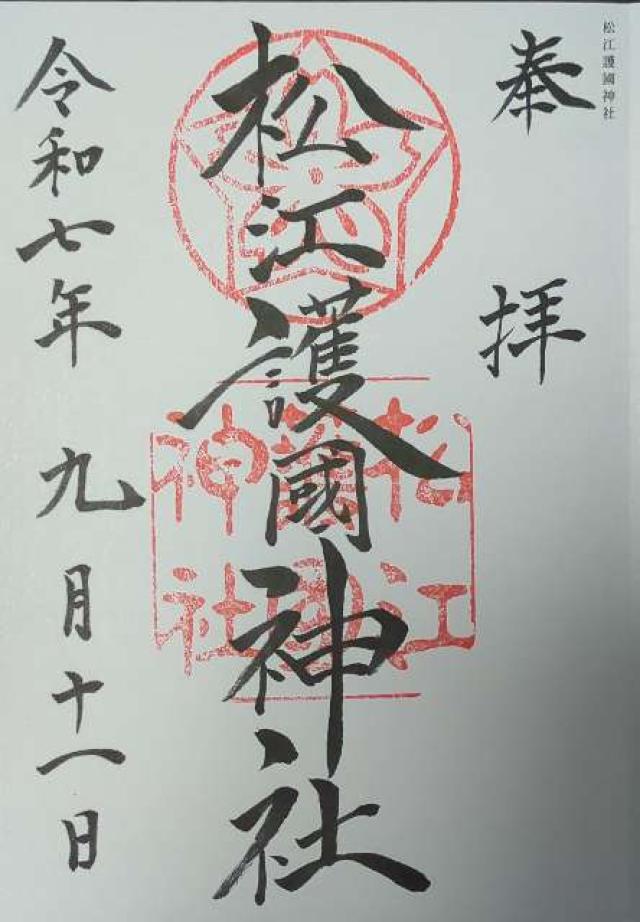 松江護國神社
奉拝
松江護國神社
松江護國神社
令和七年九月十一日